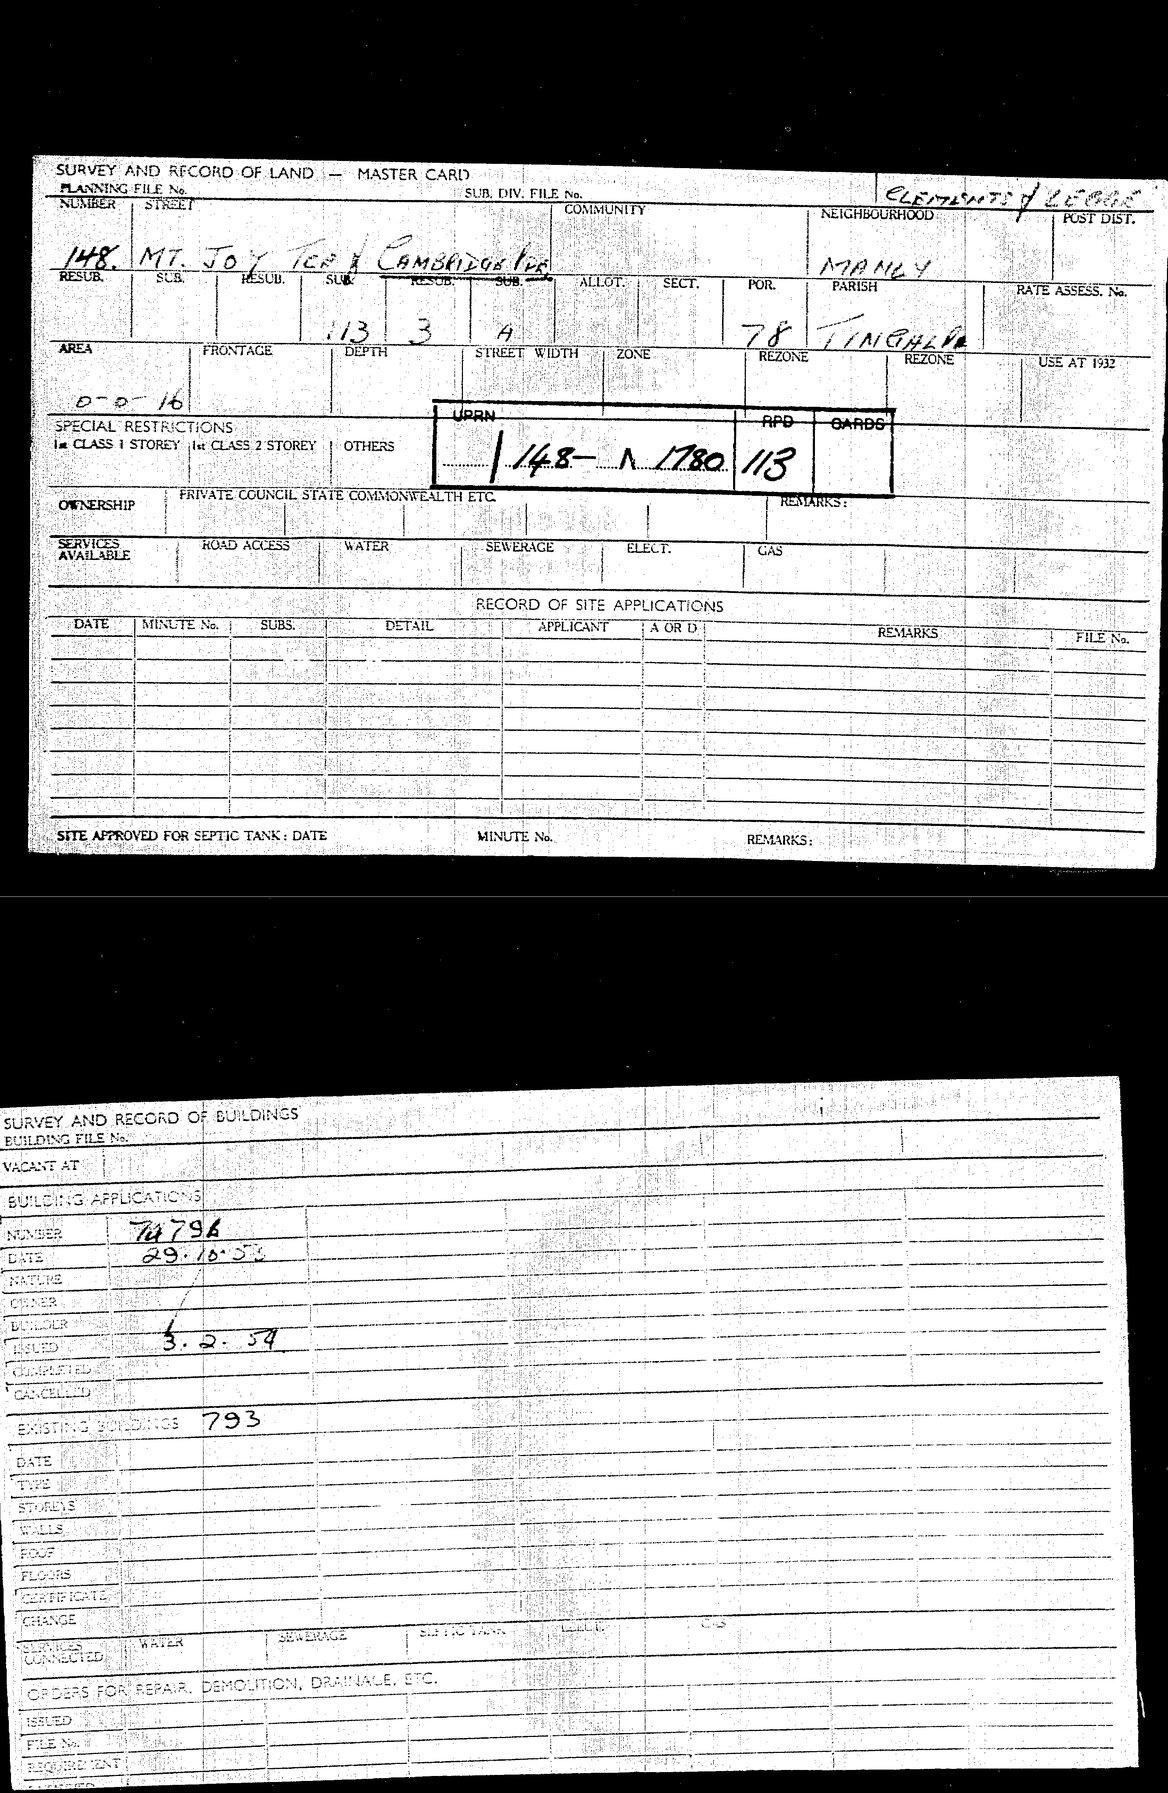 SURVEY AND RECORD OF LAND — MASTER CARD
PLANNING FILE No. SUB. DIV. FILE No. CLEMENTS & LEGGE
NUMBER STREET COMMUNITY NEIGHBOURHOOD POST DIST.
148. MT. JOY TCE & CAMBRIDGE PDE. MANLY
RESUB. SUB. RESUB. SUB. RESUB. SUB. ALLOT. SECT. POR. PARISH RATE ASSESS. No.
113 3 A 78 TINGALPA
AREA FRONTAGE DEPTH STREET WIDTH ZONE REZONE REZONE USE AT 1932
0-0-16
SPECIAL RESTRICTIONS UPRN RPD CARDS
1st CLASS 1 STOREY 1st CLASS 2 STOREY OTHERS
/ 148- A 1780 113
OWNERSHIP PRIVATE COUNCIL STATE COMMONWEALTH ETC. REMARKS:
SERVICES AVAILABLE ROAD ACCESS WATER SEWERAGE ELECT. GAS
RECORD OF SITE APPLICATIONS
DATE MINUTE No. SUBS. DETAIL APPLICANT A OR D REMARKS FILE No.
SITE APPROVED FOR SEPTIC TANK: DATE MINUTE No. REMARKS:
SURVEY AND RECORD OF BUILDINGS
BUILDING FILE No.
VACANT AT
BUILDING APPLICATIONS
NUMBER 74796
DATE 29.10.53
NATURE
OWNER
BUILDER
ISSUED 3.2.54
COMPLETED
CANCELLED
EXISTING BUILDINGS 793
DATE
TYPE
STOREYS
WALLS
ROOF
FLOORS
CERTIFICATE
CHANGE
SERVICES CONNECTED WATER SEWERAGE SEPTIC TANK ELECT. GAS
ORDERS FOR REPAIR, DEMOLITION, DRAINAGE, ETC.
ISSUED
FILE No.
REQUIREMENT